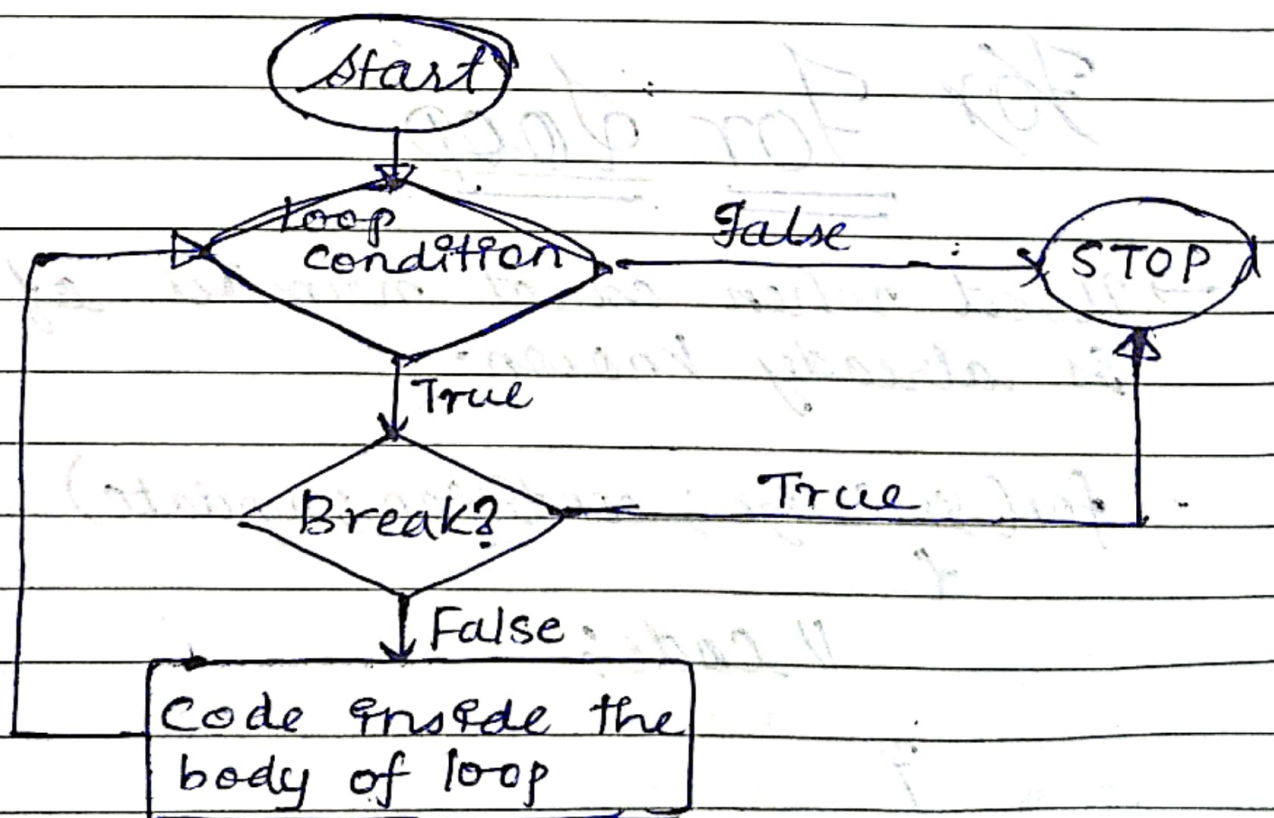 Start
Loop
condition
False
STOP
True
Break?
True
False
Code inside the
body of loop